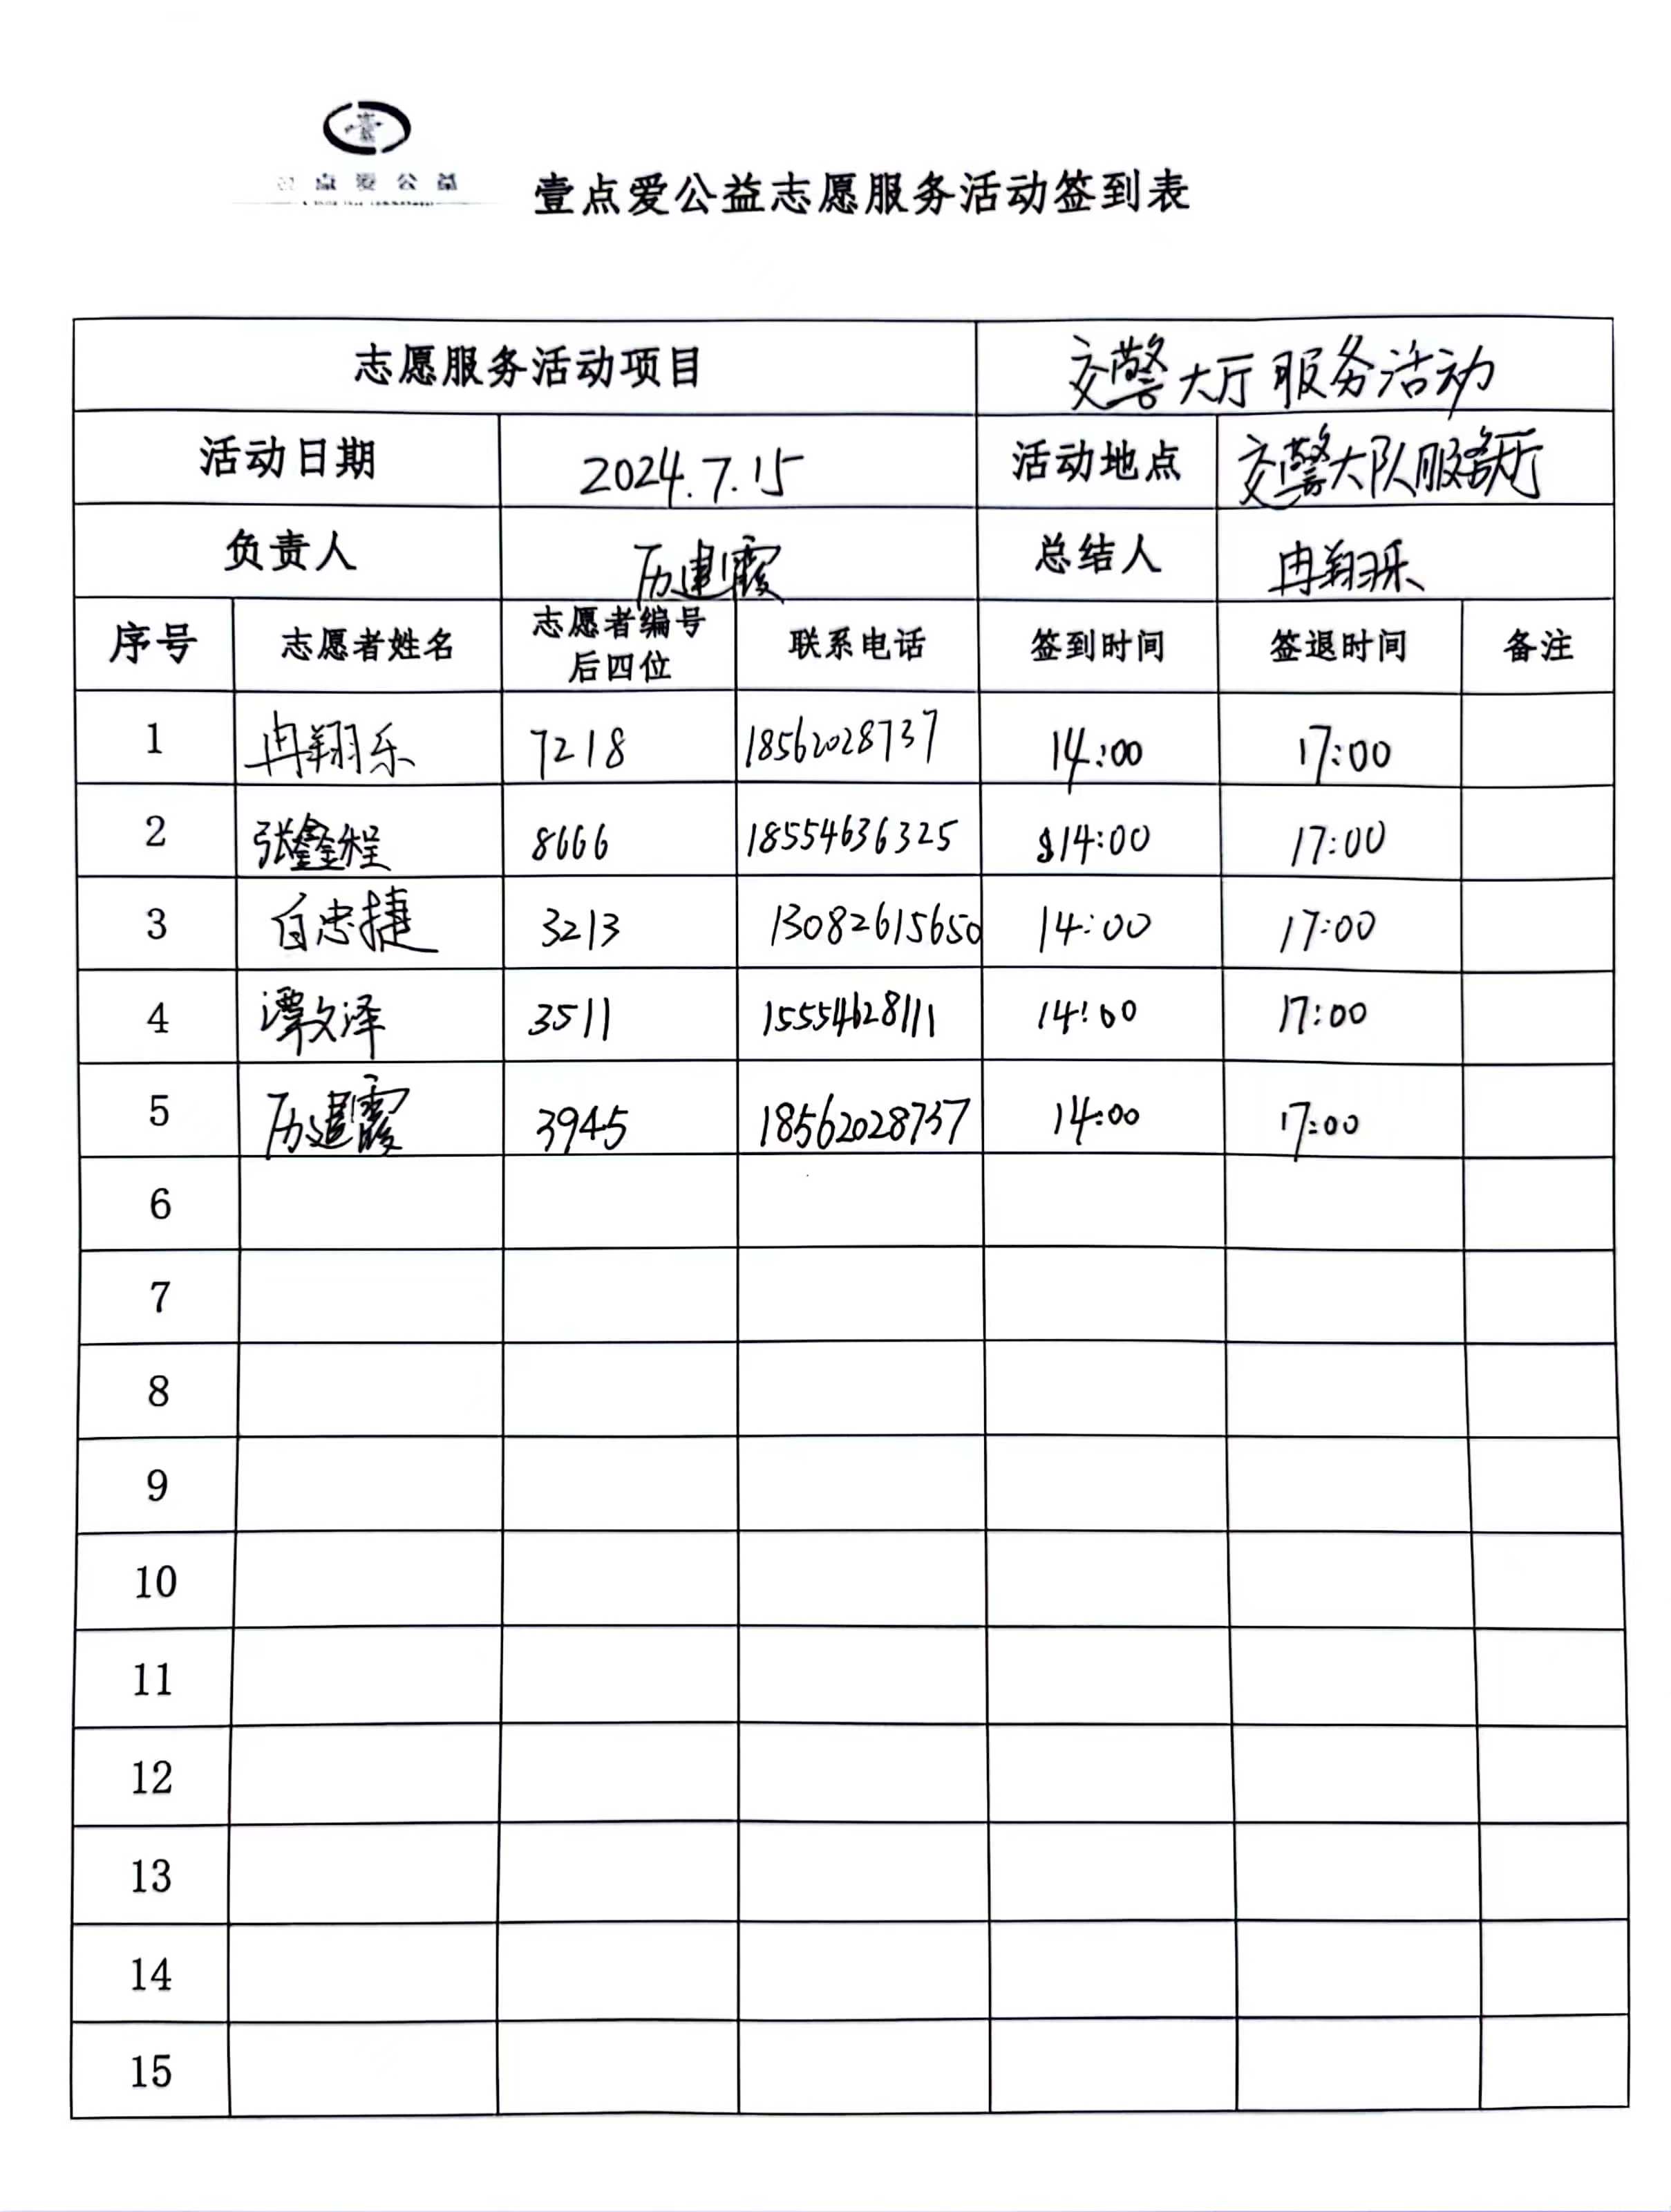 点爱公益
壹点爱公益志愿服务活动签到表
志愿服务活动项目 交警大厅服务活动
活动日期 2024.7.15 活动地点 交警大队服务大厅
负责人 历建霞 总结人 冉翔乐
序号 志愿者姓名 志愿者编号后四位 联系电话 签到时间 签退时间 备注
1 冉翔乐 7218 18562028737 14:00 17:00
2 张鑫程 8666 18554636325 14:00 17:00
3 白忠捷 3213 13082615650 14:00 17:00
4 谭文泽 3511 15554628111 14:00 17:00
5 历建霞 3945 18562028737 14:00 17:00
6
7
8
9
10
11
12
13
14
15